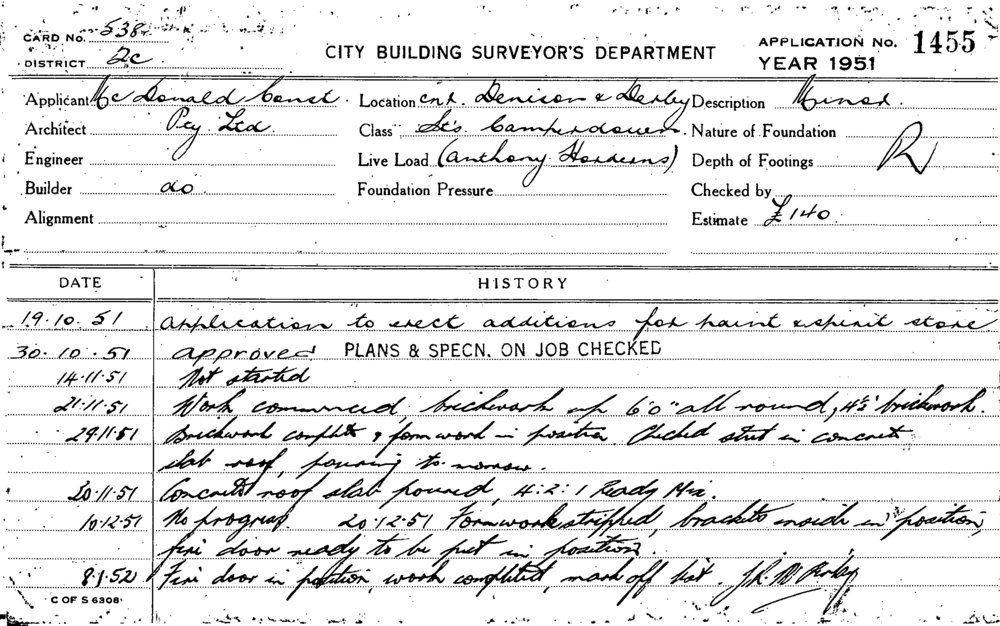 CARD No. 538
DISTRICT 2c
CITY BUILDING SURVEYOR'S DEPARTMENT
APPLICATION No. 1455
YEAR 1951
Applicant Mc Donald Const. Location cnr. Denison & Derby Description Minor.
Architect Pty Ltd Class Sts Camperdown. Nature of Foundation
Engineer Live Load (Anthony Horderns) Depth of Footings R
Builder do Foundation Pressure Checked by
Alignment Estimate £140.
DATE HISTORY
19.10.51 Application to erect additions for paint & spirit store
30.10.51 approved PLANS & SPECN. ON JOB CHECKED
14.11.51 Not started
21.11.51 Work commenced, brickwork up 6'0" all round, 4½" brickwork.
29.11.51 Brickwork complete & formwork in position Checked steel in concrete
slab roof, pouring to-morrow.
30.11.51 Concrete roof slab poured, 4:2:1 Ready Mix.
10.12.51 No progress. 20.12.51 Formwork stripped, brackets inside in position,
fire door ready to be put in position.
8.1.52 Fire door in position, work completed, mark off list.
C OF S 6308